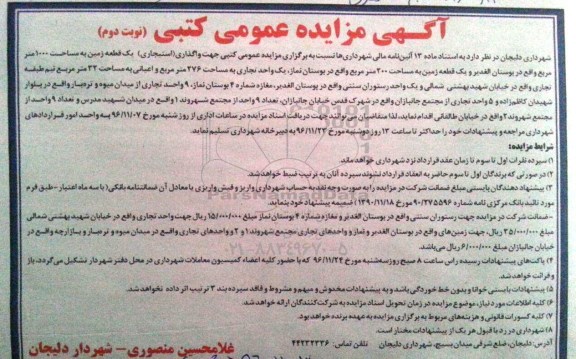 آگهی مزایده عمومی کتبی (نوبت دوم)
شهرداری دلیجان در نظر دارد به استناد ماده ۱۳ آئین‌نامه مالی شهرداری‌ها نسبت به برگزاری مزایده عمومی کتبی جهت واگذاری (استیجاری) یک قطعه زمین به مساحت ۱۰۰۰ متر
مربع واقع در بوستان الغدیر و یک قطعه زمین به مساحت ۲۰۰ متر مربع واقع در بوستان نماز، یک واحد تجاری به مساحت ۲۷۶ متر مربع و اعیانی به مساحت ۳۲ متر مربع نیم طبقه
تجاری واقع در خیابان شهید بهشتی شمالی و یک واحد رستوران سنتی واقع در بوستان الغدیر، مغازه شماره ۴ بوستان نماز، ۹ واحد تجاری از میدان میوه و تره‌بار واقع در بلوار
شهیدان کاظم‌زاده و ۵ واحد تجاری از مجتمع جانبازان واقع در شهرک قدس خیابان جانبازان، تعداد ۹ واحد از مجتمع شهروند ۱ واقع در میدان شهید مدرس و تعداد ۹ واحد از
مجتمع شهروند ۲ واقع در خیابان طالقانی اقدام نماید، لذا متقاضیان می‌توانند جهت دریافت اسناد مزایده در ساعات اداری از روز شنبه مورخ ۹۶/۱۱/۰۷ به واحد امور قراردادهای
شهرداری مراجعه و پیشنهادات خود را حداکثر تا ساعت ۱۳ روز دوشنبه مورخ ۹۶/۱۱/۲۳ به دبیرخانه شهرداری تسلیم نماید.
شرایط مزایده:
۱) سپرده نفرات اول تا سوم تا زمان عقد قرارداد نزد شهرداری خواهد ماند.
۲) در صورتی که برندگان اول تا سوم حاضر به انعقاد قرارداد نشوند سپرده آنان به ترتیب ضبط خواهد شد.
۳) پیشنهاد دهندگان بایستی مبلغ ضمانت شرکت در مزایده را به صورت وجه نقد به حساب شهرداری واریز و فیش واریزی یا معادل آن ضمانتنامه بانکی (با سه ماه اعتبار - طبق فرم
مورد تائید بانک مرکزی نامه شماره ۹۰/۲۷۵۵۹۶ مورخ ۱۳۹۰/۱۱/۱۸) ضمیمه پیشنهاد خود بنماید.
-ضمانت شرکت در مزایده جهت رستوران سنتی واقع در بوستان الغدیر و مغازه شماره ۴ بوستان نماز مبلغ ۱۵/۰۰۰/۰۰۰ ریال جهت واحد تجاری واقع در خیابان شهید بهشتی شمالی
مبلغ ۲۵/۰۰۰/۰۰۰ ریال، جهت زمین‌های واقع در بوستان الغدیر و نماز و واحدهای تجاری مجتمع شهروند ۱ و ۲ و واحدهای تجاری واقع در میدان میوه و تره‌بار و بازارچه واقع در
خیابان جانبازان مبلغ ۶/۰۰۰/۰۰۰ ریال می‌باشد.
۴) پاکت‌های پیشنهادات رسیده راس ساعت ۸ صبح روز سه‌شنبه مورخ ۹۶/۱۱/۲۴ که با حضور کلیه اعضاء کمیسیون معاملات شهرداری در محل دفتر شهردار تشکیل می‌گردد، باز
و قرائت خواهد شد.
۵) پیشنهادات بایستی خوانا و بدون خط خوردگی باشد و به پیشنهادات مخدوش و مبهم و مشروط و فاقد سپرده بند ۳ ترتیب اثر داده نخواهد شد.
۶) کلیه اطلاعات مورد نیاز، موضوع مزایده در زمان تحویل اسناد مزایده به شرکت‌کنندگان ارائه خواهد شد.
۷) کلیه کسورات قانونی و هزینه‌های مربوط به برگزاری مزایده به عهده برنده خواهد بود.
۸) شهرداری در رد یا قبول هر یک از پیشنهادات مختار است.
آدرس: دلیجان، ضلع شرقی میدان بسیج، شهرداری دلیجان تلفن تماس: ۴۴۲۲۲۳۳۶
غلامحسین منصوری - شهردار دلیجان
ParsNamadData
۰۲۱-۸۸۳۴۹۶۷۰-۵